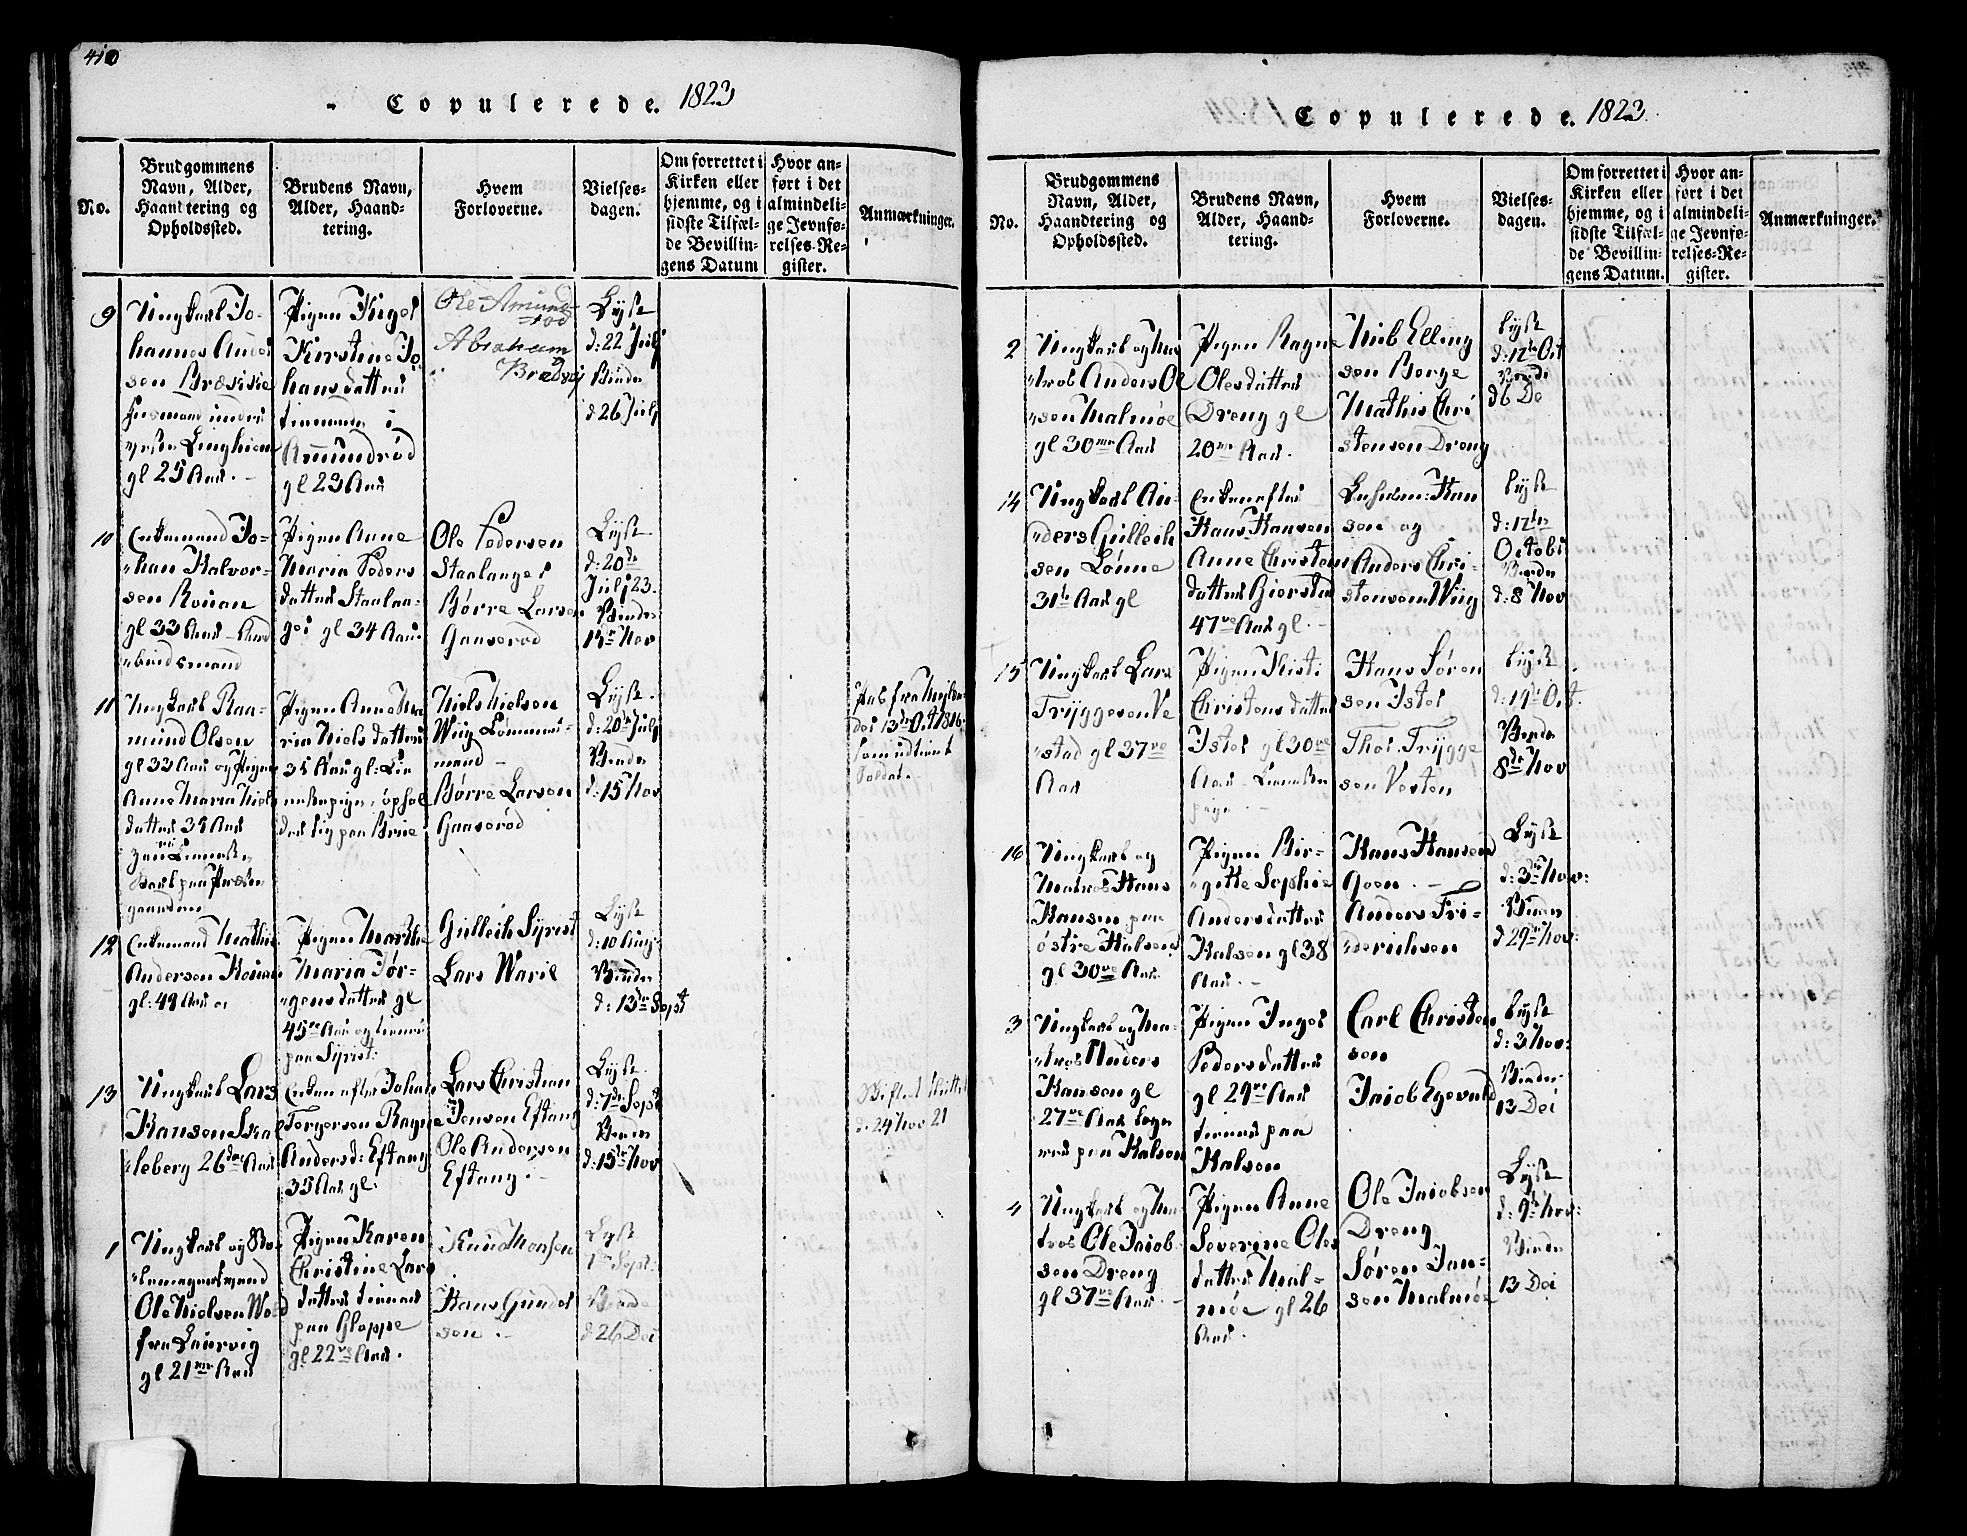 410
Copulerede. 1823
No.
Brudgommens
Navn, Alder,
Haandtering og
Opholdssted.
Brudens Navn,
Alder, Haand-
tering.
Hvem
Forloverne.
Vielses-
dagen.
Om forrettet i
Kirken eller
hjemme, og i
sidste Tilfæl-
de Bevillin-
gens Datum
Hvor an-
ført i det
almindeli-
ge Jevnfø-
relses-Re-
gister.
Anmærkninger.
9
Ungkarl Jo-
hannes Anders
sen Bræskie
Huusmand under
gl 25 Aar.
Pigen Ingel
Kirstine Jo
hans datter
tienende i
Amundrød
gl 23 Aar
Ole Amund-
rød
Abraham
Lyst
d: 22 Julj
Viede
d 26 Julj
10
Enkemand Jo-
han Halvor-
sen Roian
gl 33 Aar
Pigen Anne
Maria Peders
datter Staalan-
ger gl 34 Aar
Ole Pedersen
Staalanger
Børre Larsen
Gaaserød
Lyst
d: 20de
Julj 23.
Viede
15de Nov
11
Ungkarl Raa-
mund Olsen
gl 33 Aar og Pigen
Anne Maria Niels
datter 35 Aar
Pigen Anne Ma
ria Niels datter
35 Aar gl:
Niels Nielsen
Wiig Lømmu-
mand
Børre Larsen
Gaaserød
Lyst
d: 20de Julj
Viede
d: 15 Nov
Pas fra
13de Oct 1816
som udtient
Soldat.
12
Enkemand Mathis
Andersen Roian
gl: 49 Aar
Pigen Marthe
Maria Jør-
gens datter gl
45 Aar og tienende
paa Syrist:
Gulleich Syrist
Lars Waril
Lyst
d: 10 Aug:
Viede
d: 13de Sept
13
Ungkarl Lars
Hansen Skal
leberg 26 Aar
Enken efter Johan
Torgersen Ragne
Andersd: Eftang
35 Aar gl:
Lars Christian
Jensen Eftang
Ole Andersen
Eftang
Lyst
d: 7de Sept
Viede
d: 15de Nov
d: 24 Nov 21
1
Ungkarl og
Ole Nielsen
fra Laurvig
gl 21 Aar
Pigen Karen
Christine Lars
datter tienende
paa Gloppe
gl 22 Aar.
Knud Monsen
Hans Gunder
sen
Lyst
7de Sept:
Viede
d 26 Dec
Copulerede. 1823
No.
Brudgommens
Navn, Alder,
Haandtering og
Opholdssted.
Brudens Navn,
Alder, Haand-
tering.
Hvem
Forloverne.
Vielses-
dagen.
Om forrettet i
Kirken eller
hjemme, og i
sidste Tilfæl-
de Bevillin-
gens Datum.
Hvor an-
ført i det
almindeli-
ge Jevnfø-
relses-Re-
gister.
Anmærkninger.
2
Ungkarl og Ma
tros Anders Ol
sen Malmøe
gl 30 Aar
Pigen Ragne
Oles datter
Dreng gl
20 Aar.
Niels Elling
sen Berge
Mathis Chri
stensen Dreng
Lyst
d: 12te Oct
Viede
d 6 De
14
Ungkarl An-
ders Gulleich
sen Lønne
31 Aar gl
Enken efter
Hans Hansen
Anne Christen
datter Giersted
47 Aar gl.
Han
sen og
Anders Chri-
stensen Wiig
Lyst
d: 12te
Octobr
Viede
d: 8 Nov
15
Ungkarl Lars
Tryggesen Ve
stad gl 37
Aar
Pigen Kisti
Christens datter
Istel gl 30
Aar
Hans Søren
sen Istel
Thor Trygge
sen Vesten
Lyst
d: 19de Oct.
Viede
8de Nov
16
Ungkarl og
Matros Hans
Hansen paa
østre Halsen
gl 30 Aar.
Pigen Bir-
gitte Sophie
Anders datter
Halsen gl 38
Aar.
Hans Hansen
Goen.
Anders Fri-
derichsen
Lyst
d: 3de Nov:
Viede
d 29de Nov:
3
Ungkarl og Ma-
tros Anders
Hansen gl
27 Aar
paa Halsen
Pigen Ingel
Peders datter
gl 29 Aar
tienende paa
Halsen
Carl Christen
sen
Jacob Egevald
Lyst
d: 3 Nov:
Viede
13 Dec
4
Ungkarl og Ma
tros Ole Jacob
sen Dreng
gl 37 Aar
Pigen Anne
Severine Oles
datter Mal-
møe gl 26
Aar.
Ole Jacobsen
Dreng
Søren Jan-
sen Malmøe
Lyst
d: 9de Nov:
Viede
13 Dec